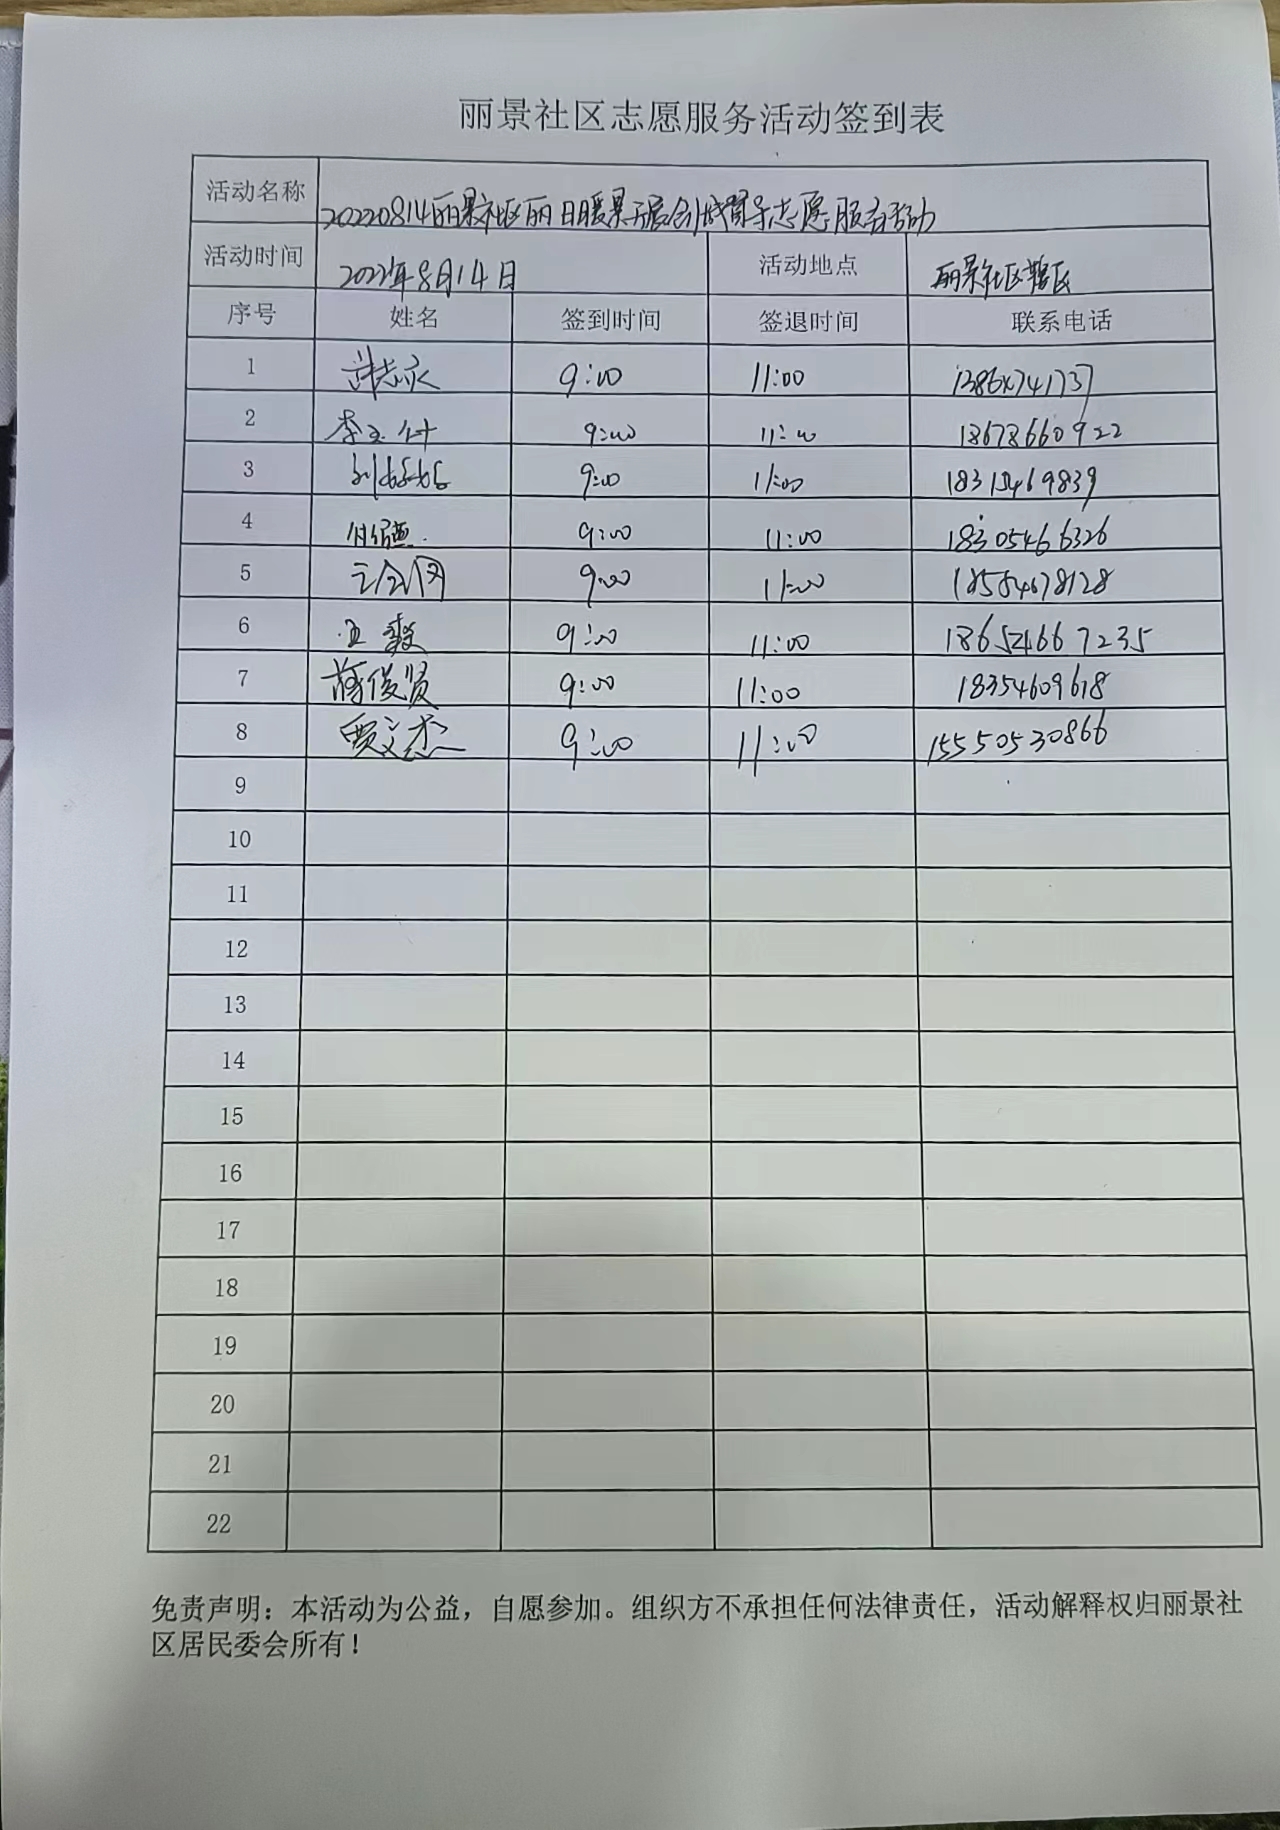 丽景社区志愿服务活动签到表
活动名称 20220814丽景社区丽日暖景开展创城督导志愿服务活动
活动时间 2022年8月14日 活动地点 丽景社区辖区
序号 姓名 签到时间 签退时间 联系电话
1 9:00 11:00
2 李玉竹 9:00 11:00 18678660922
3 刘婷婷 9:00 11:00
4 9:00 11:00 18305466326
5 9:00 11:00 18554678128
6 9:00 11:00 18654667235
7 蒋俊贤 9:00 11:00 18354609618
8 贾文杰 9:00 11:00 15550530866
9
10
11
12
13
14
15
16
17
18
19
20
21
22
免责声明：本活动为公益，自愿参加。组织方不承担任何法律责任，活动解释权归丽景社
区居民委会所有！